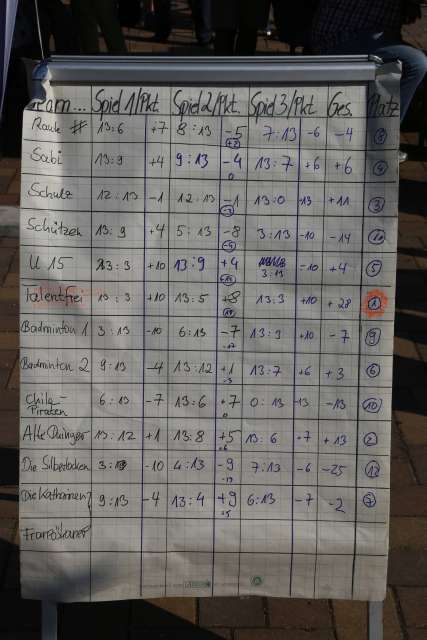 Team... Spiel 1/Pkt Spiel 2/Pkt. Spiel 3/Pkt Ges. Platz
Raute # 13:6 +7 8:13 -5 7:13 -6 -4 8
+2
Sabi 13:9 +4 9:13 -4 13:7 +6 +6 4
0
Schulz 12:13 -1 12:13 -1 13:0 13 +11 3
Schützen 13:9 +4 5:13 -8 3:13 -10 -14
-4
U 15 13:3 +10 13:9 +4 3:13 -10 +4 5
+14
Talentfrei 13:3 +10 13:5 +8 13:3 +10 +28 1
+18
Badminton 1 3:13 -10 6:13 -7 13:3 +10 -7 9
-17
Badminton 2 9:13 -4 13:12 +1 13:7 +6 +3 6
-3
Chila-
Piraten 6:13 -7 13:6 +7 0:13 -13 -13 10
0
Alte 13:12 +1 13:8 +5 13:6 +7 +13 2
+6
Die Silberlocken 3:13 -10 4:13 -9 7:13 -6 -25 12
-19
Die 9:13 -4 13:4 +9 6:13 -7 -2 7
+5
Franziskaner